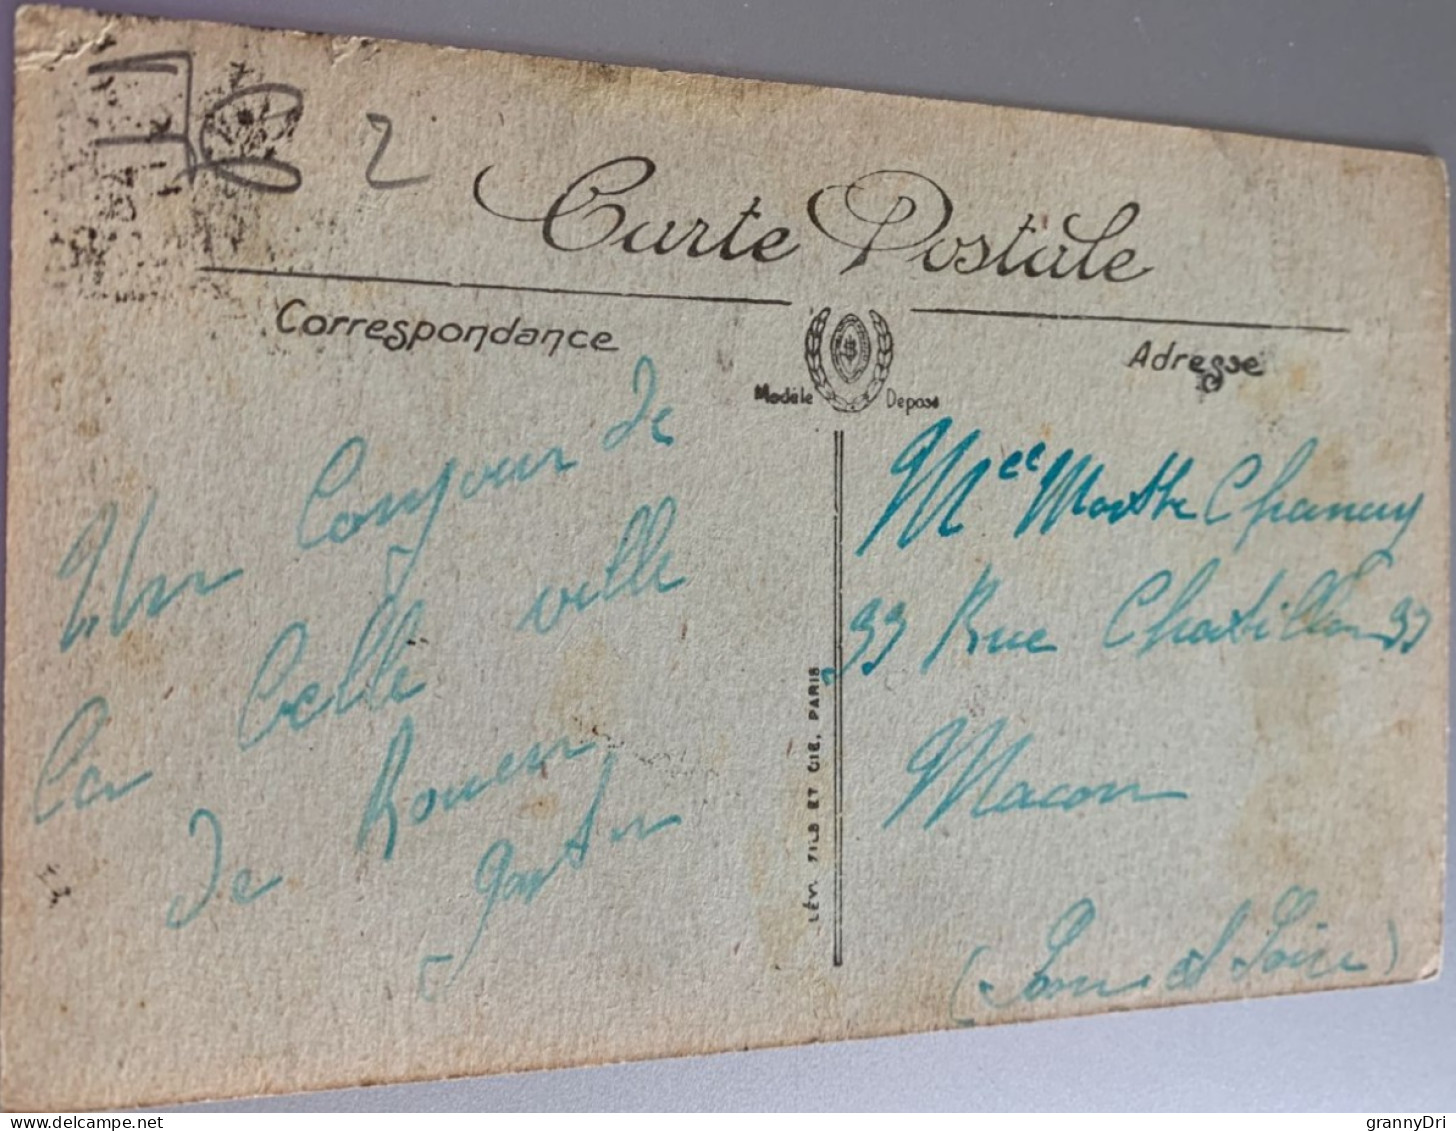 76 2
Carte Postale
Correspondance
Adresse
Modèle Déposé
Un bonjour de
la belle ville
de Rouen
Gaston
Mlle Marthe Chanay
33 Rue Chatillon 33
Macon
(Saone et Loire)
LÉVY FILS ET CIE, PARIS
delcampe.net
grannyDri